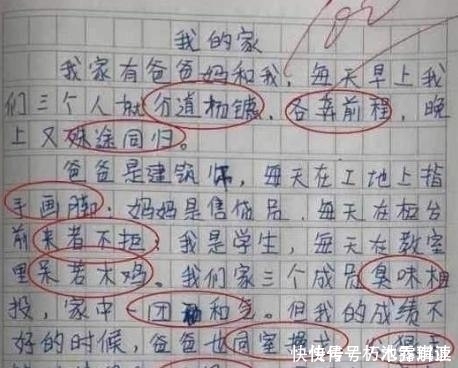 100
我的家
我家有爸爸妈和我,每天早上我
们三个人就分道杨镳,各奔前程,晚
上又殊途同归。
爸爸是建筑师,每天在工地上指
手画脚;妈妈是售货品,每天在柜台
前来者不拒;我是学生,每天在教室
里呆若木鸡。我们家三个成员臭味相
投,家中一团和气。但我的成绩不
好的时候,爸爸也同室操戈
快传号